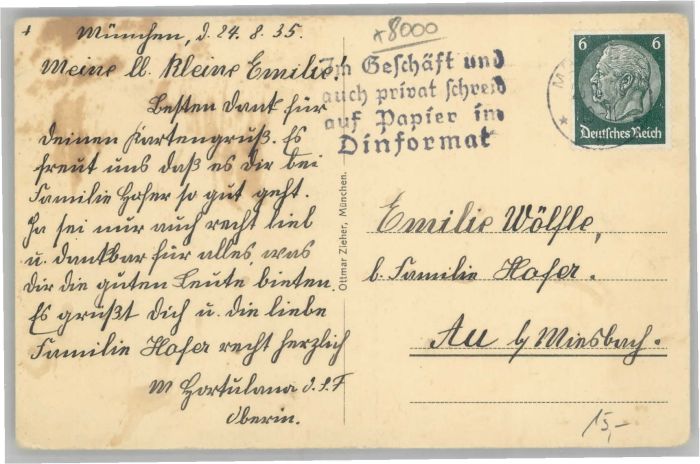 München, d. 24. 8. 35.
Meine lb. kleine Emilie!
Besten Dank für
deinen Kartengruß. Es
freut uns daß es dir bei
Familie Hofer so gut geht.
Ja sei nur auch recht lieb
u. dankbar für alles was
Dir die guten Leute bieten.
Es grüßt Dich u. die liebe
Familie Hofer recht herzlich
M Hortulana
Oberin.
Ottmar Zieher, München.
x8000
Im Geschäft und
auch privat schreib
auf Papier im
Dinformat
6 6
Deutsches Reich
Emilie Wölfle,
b. Familie Hofer.
Au b/ Miesbach.
15,-